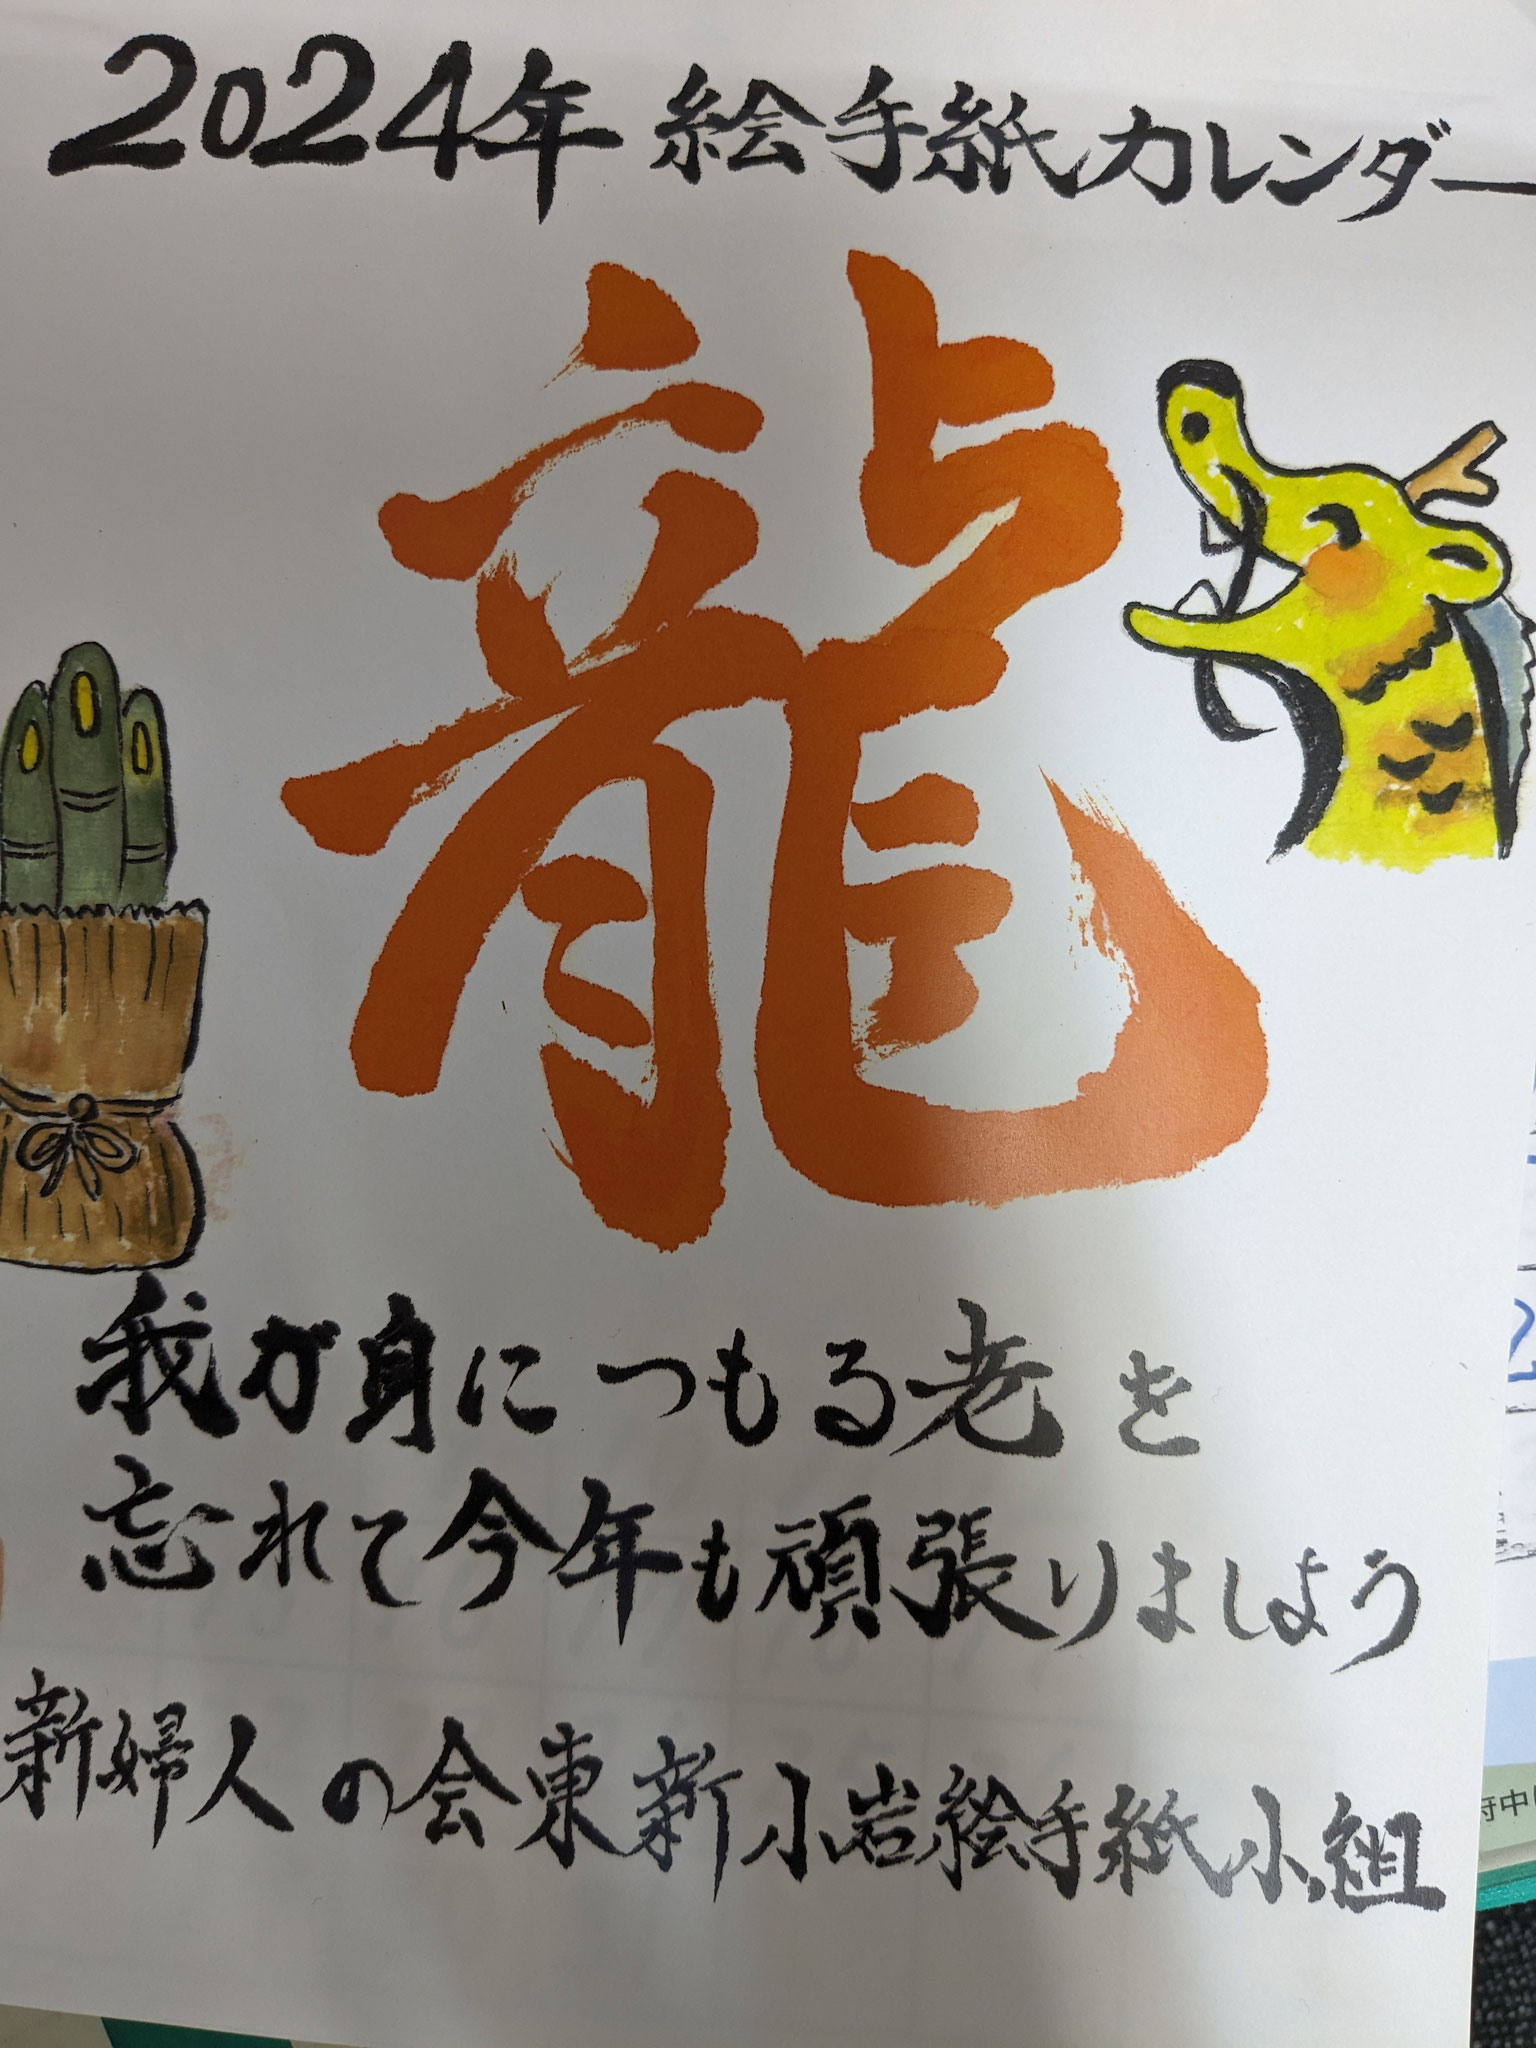 2024年 絵手紙カレンダー
龍
我が身につもる老を
忘れて今年も頑張りましょう
新婦人の会東新小岩絵手紙小組
府中